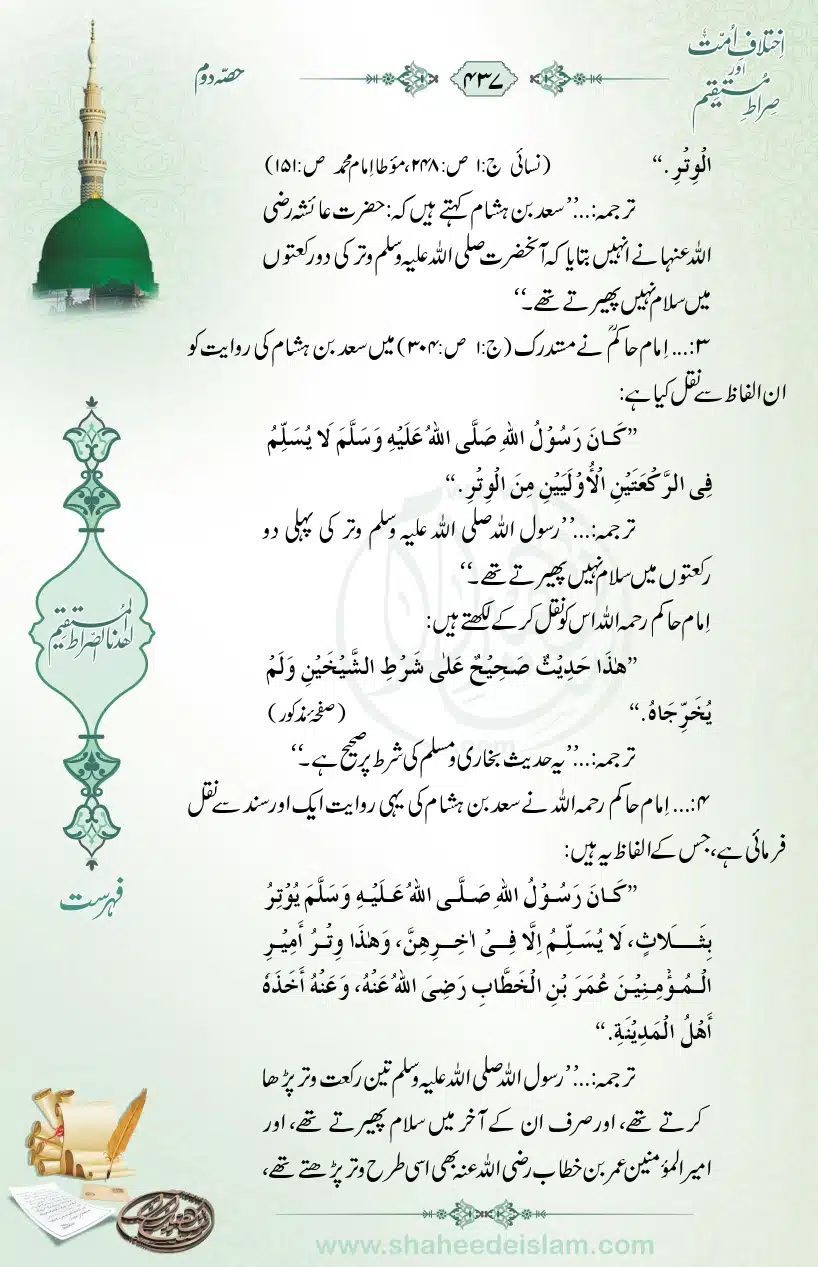 اِختلافِ اُمّت
اور
صراطِ مُستقیم
۴۳۷
حصّہ دوم
الْوِتْرِ.“ (نسائی ج:۱ ص:۲۴۸، مؤطا اِمام محمد ص:۱۵۱)
ترجمہ:...’’سعد بن ہشام کہتے ہیں کہ: حضرت عائشہ رضی
اللہ عنہا نے انہیں بتایا کہ آنحضرت صلی اللہ علیہ وسلم وتر کی دو رکعتوں
میں سلام نہیں پھیرتے تھے۔‘‘
۳:... اِمام حاکمؒ نے مستدرک (ج:۱ ص:۳۰۴) میں سعد بن ہشام کی روایت کو
ان الفاظ سے نقل کیا ہے:
”کَانَ رَسُوْلُ اللهِ صَلَّی اللهُ عَلَیْهِ وَسَلَّمَ لَا یُسَلِّمُ
فِی الرَّکْعَتَیْنِ الْأُوْلَیَیْنِ مِنَ الْوِتْرِ.“
ترجمہ:...’’رسول اللہ صلی اللہ علیہ وسلم وتر کی پہلی دو
رکعتوں میں سلام نہیں پھیرتے تھے۔‘‘
اِمام حاکم رحمہ اللہ اس کو نقل کرکے لکھتے ہیں:
”هٰذَا حَدِیْثٌ صَحِیْحٌ عَلٰی شَرْطِ الشَّیْخَیْنِ وَلَمْ
یُخَرِّجَاهُ.“ (صفحۂ مذکور)
ترجمہ:...’’یہ حدیث بخاری و مسلم کی شرط پر صحیح ہے۔‘‘
۴:... اِمام حاکم رحمہ اللہ نے سعد بن ہشام کی یہی روایت ایک اور سند سے نقل
فرمائی ہے، جس کے الفاظ یہ ہیں:
”کَانَ رَسُوْلُ اللهِ صَلَّی اللهُ عَلَیْهِ وَسَلَّمَ یُوْتِرُ
بِثَلَاثٍ، لَا یُسَلِّمُ اِلَّا فِیْ اٰخِرِهِنَّ، وَهٰذَا وِتْرُ أَمِیْرِ
الْمُؤْمِنِیْنَ عُمَرَ بْنِ الْخَطَّابِ رَضِیَ اللهُ عَنْهُ، وَعَنْهُ أَخَذَهٗ
أَهْلُ الْمَدِیْنَةِ.“
ترجمہ:...’’رسول اللہ صلی اللہ علیہ وسلم تین رکعت وتر پڑھا
کرتے تھے، اور صرف ان کے آخر میں سلام پھیرتے تھے، اور
امیر المؤمنین عمر بن خطاب رضی اللہ عنہ بھی اسی طرح وتر پڑھتے تھے،
اھدنا الصراط المستقیم
فہرست
www.shaheedeislam.com